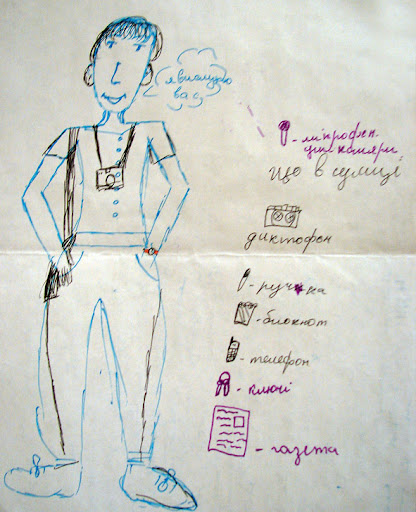 я вислухаю
вас
- мікрофон
для камери
що в сумці
диктофон
- ручка
- блокнот
- телефон
- ключі
- газета